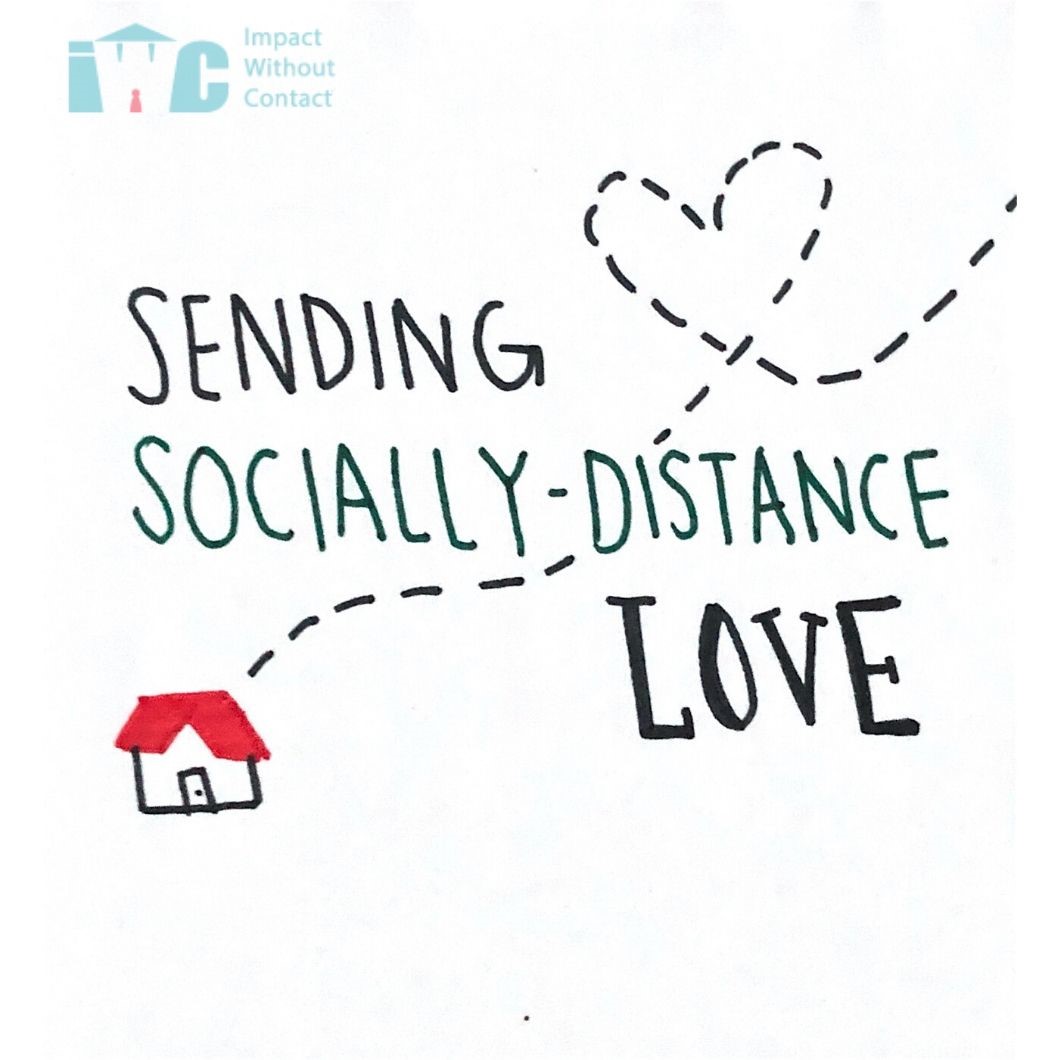 iWC
Impact
Without
Contact
SENDING
SOCIALLY-DISTANCE
LOVE